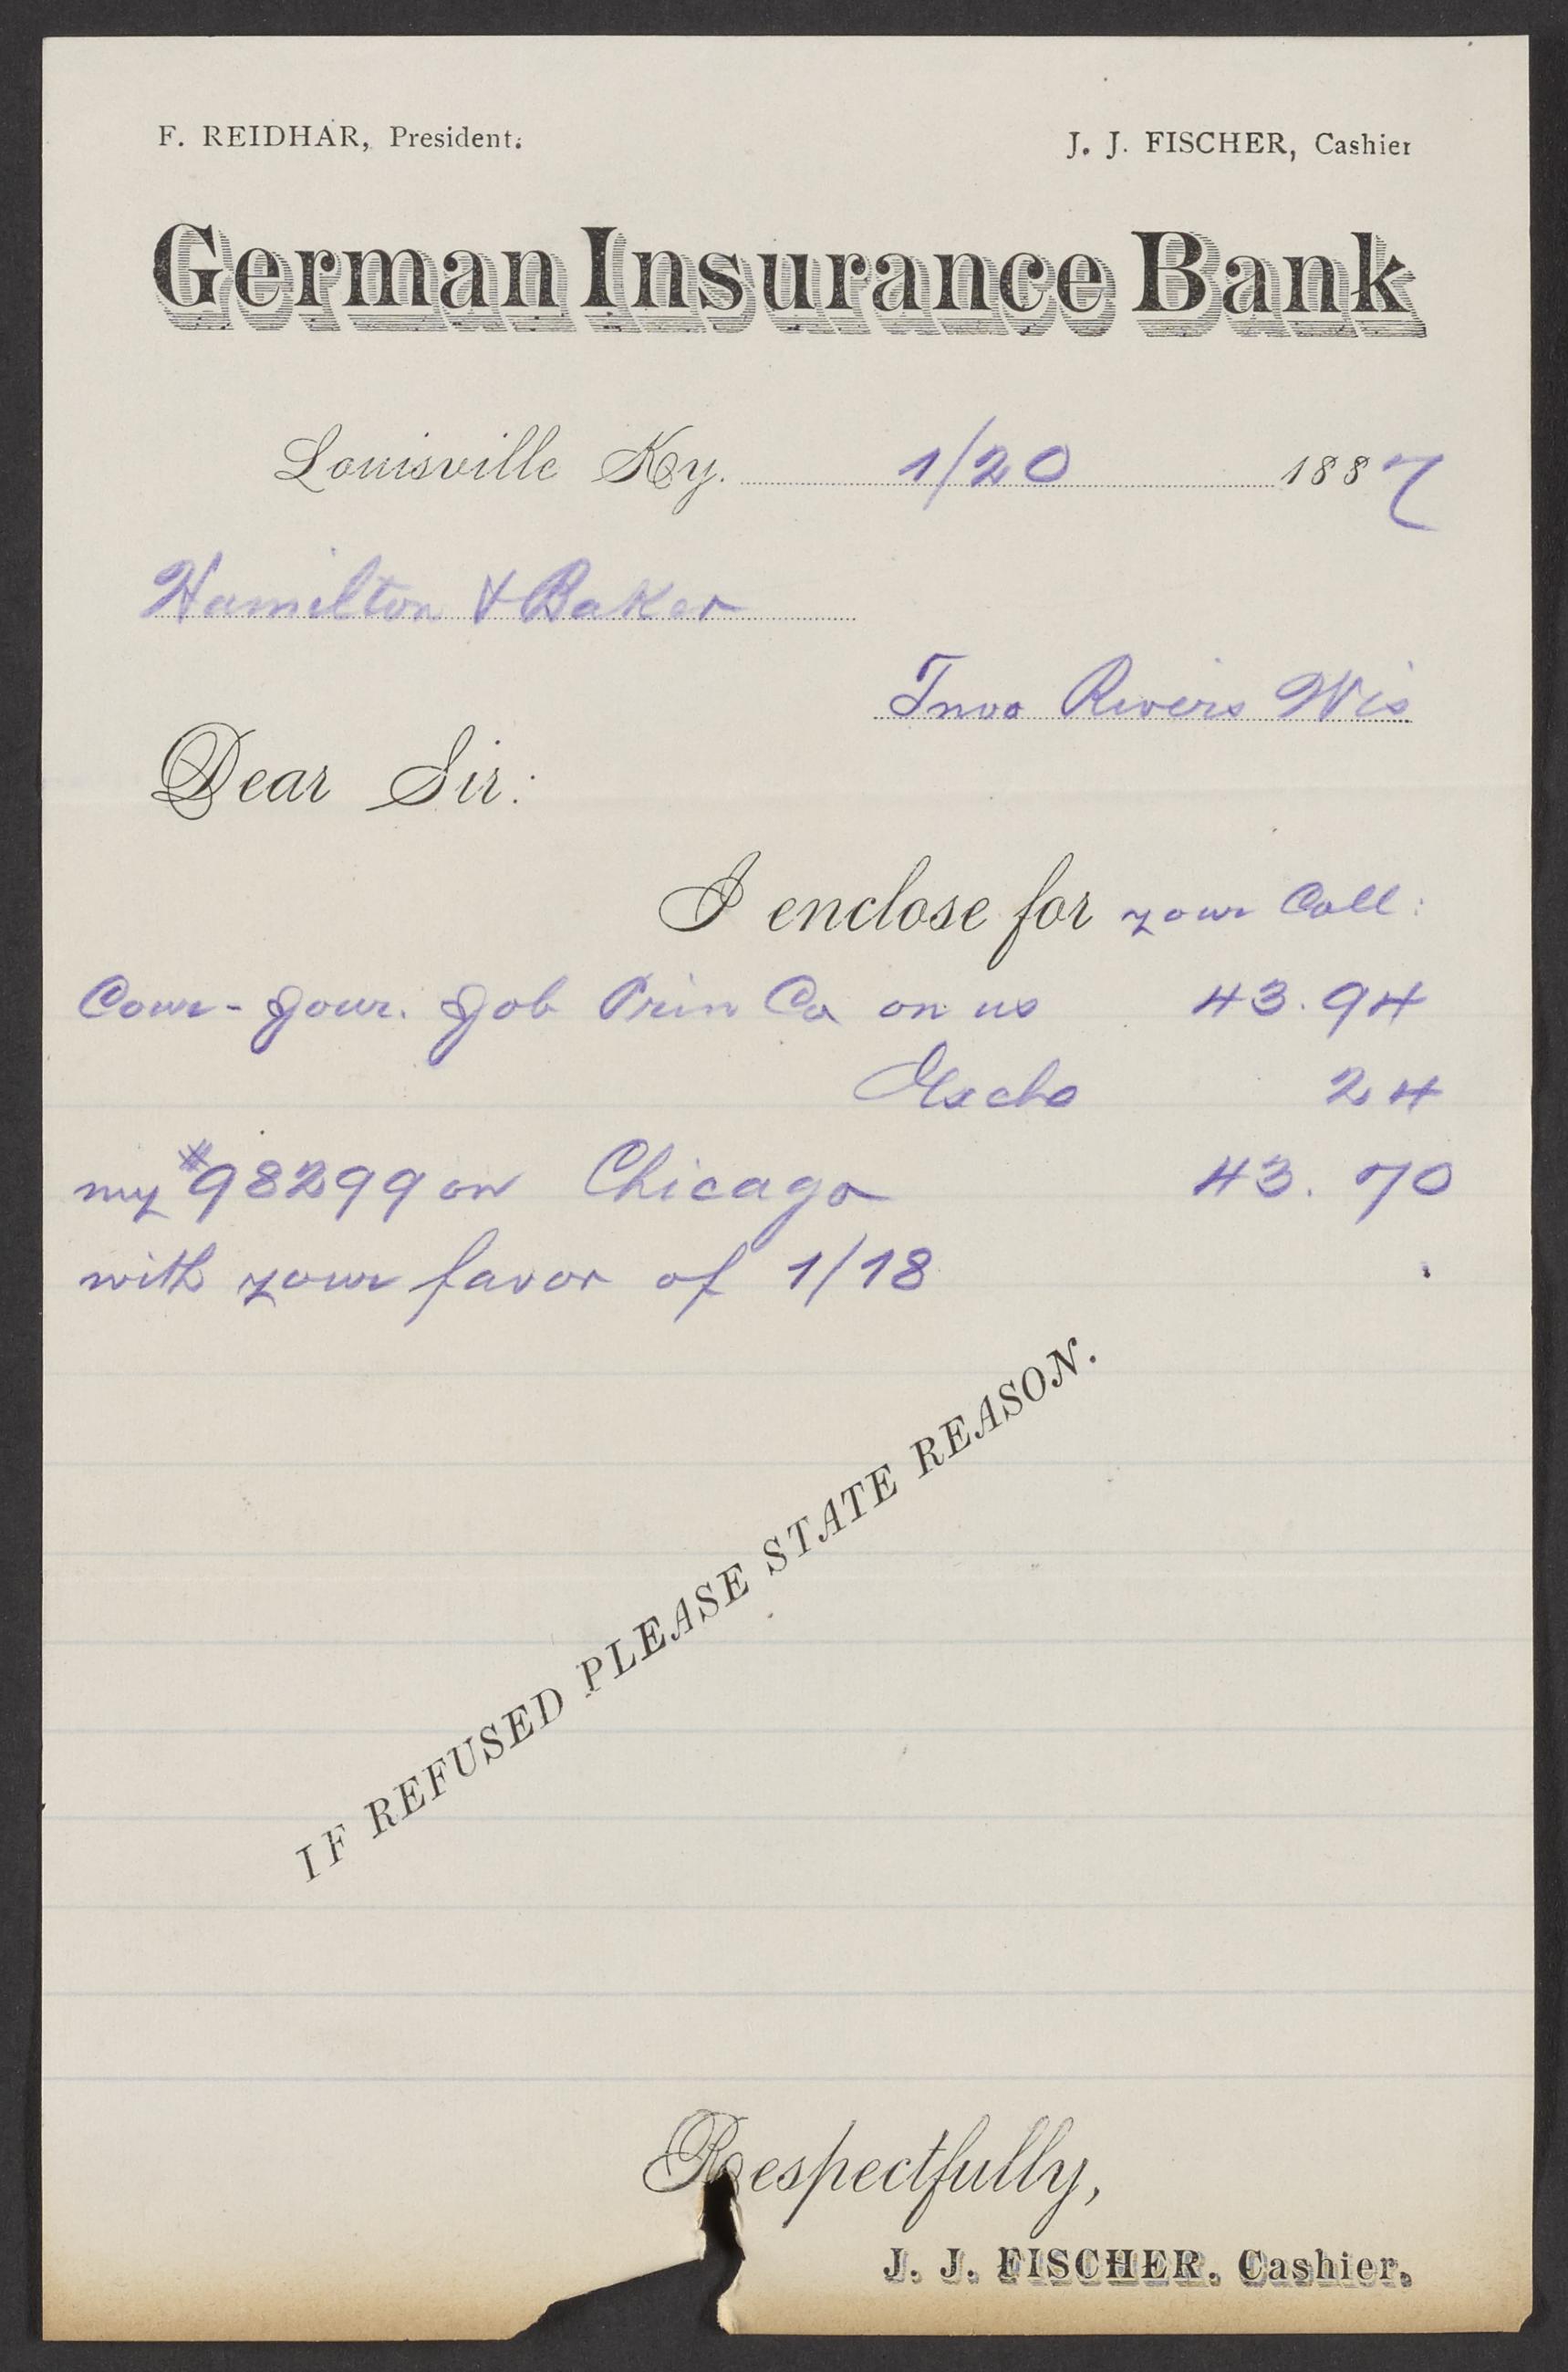 F. REIDHAR, President. J. J. FISCHER, Cashier
German Insurance Bank
Louisville Ky. 1/20 1887
Hamilton & Baker
Two Rivers Wis
Dear Sir:
I enclose for your Coll:
Cour-Jour. Job Prin Co on us 43.94
Exchg 24
my #98299 on Chicago 43.70
with your favor of 1/18
IF REFUSED PLEASE STATE REASON.
Respectfully,
J. J. FISCHER. Cashier.